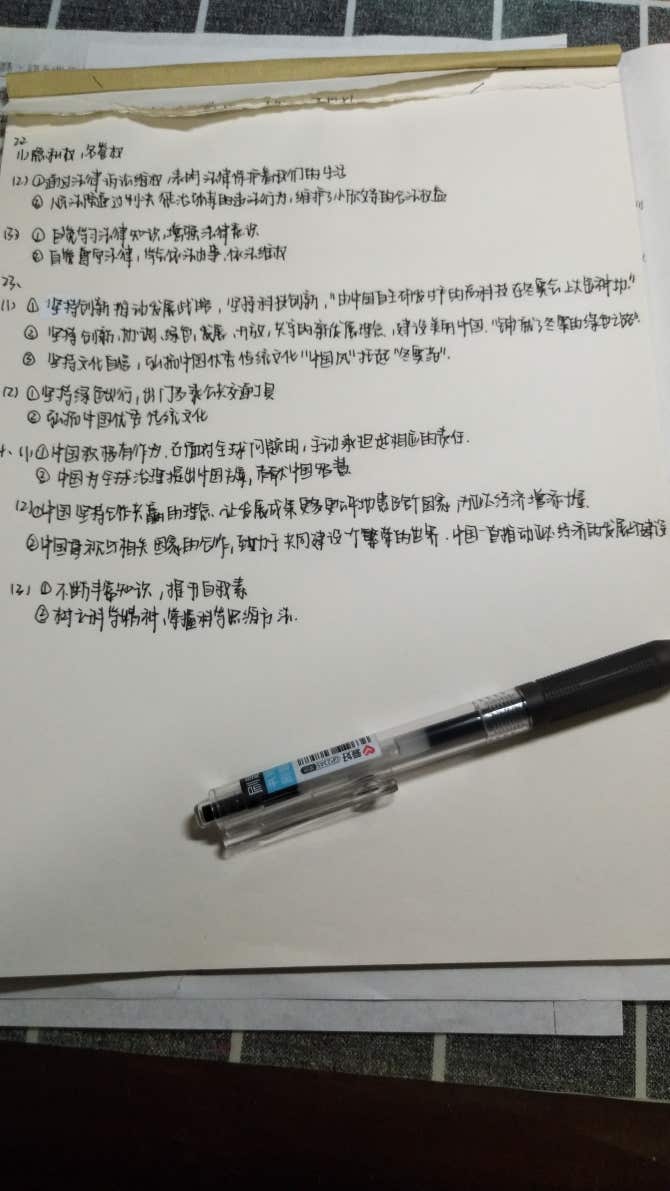 22
(1) 隐私权,名誉权
(2) ①通过法律诉讼维权,表明法律保护着我们的生活
② 人民法院通过判决惩治了的违法行为,维护了小欣的合法权益
(3) ① 自觉学习法律知识,增强法律意识
② 自觉尊崇法律,学会依法办事、依法维权
23、
(1) ① 坚持创新推动发展战略,坚持科技创新,"由中国自主研发的高科技在冬奥会上大显神功."
② 坚持创新,协调,绿色,发展,开放,共享的新发展理念,建设美丽中国."铸就了冬奥的绿色之路".
③ 坚持文化自信,弘扬中国优秀传统文化"中国风"托起"冬奥范".
(2) ①坚持绿色出行,出门多乘公共交通工具
② 弘扬中国优秀传统文化
(1)①中国积极有作为,在面对全球问题时,主动承担起相应的责任.
② 中国为全球治理提出中国方案,贡献中国智慧
(2)①中国坚持合作共赢的理念,让发展成果更多更公平地惠及各个国家,为亚太经济增添力量.
②中国重视与相关国家的合作,致力于共同建设一个繁荣的世界.中国一直推动亚太经济的发展与建设
(3) ① 不断丰富知识,提升自我素
② 树立科学精神,掌握科学思维方法.
爱好